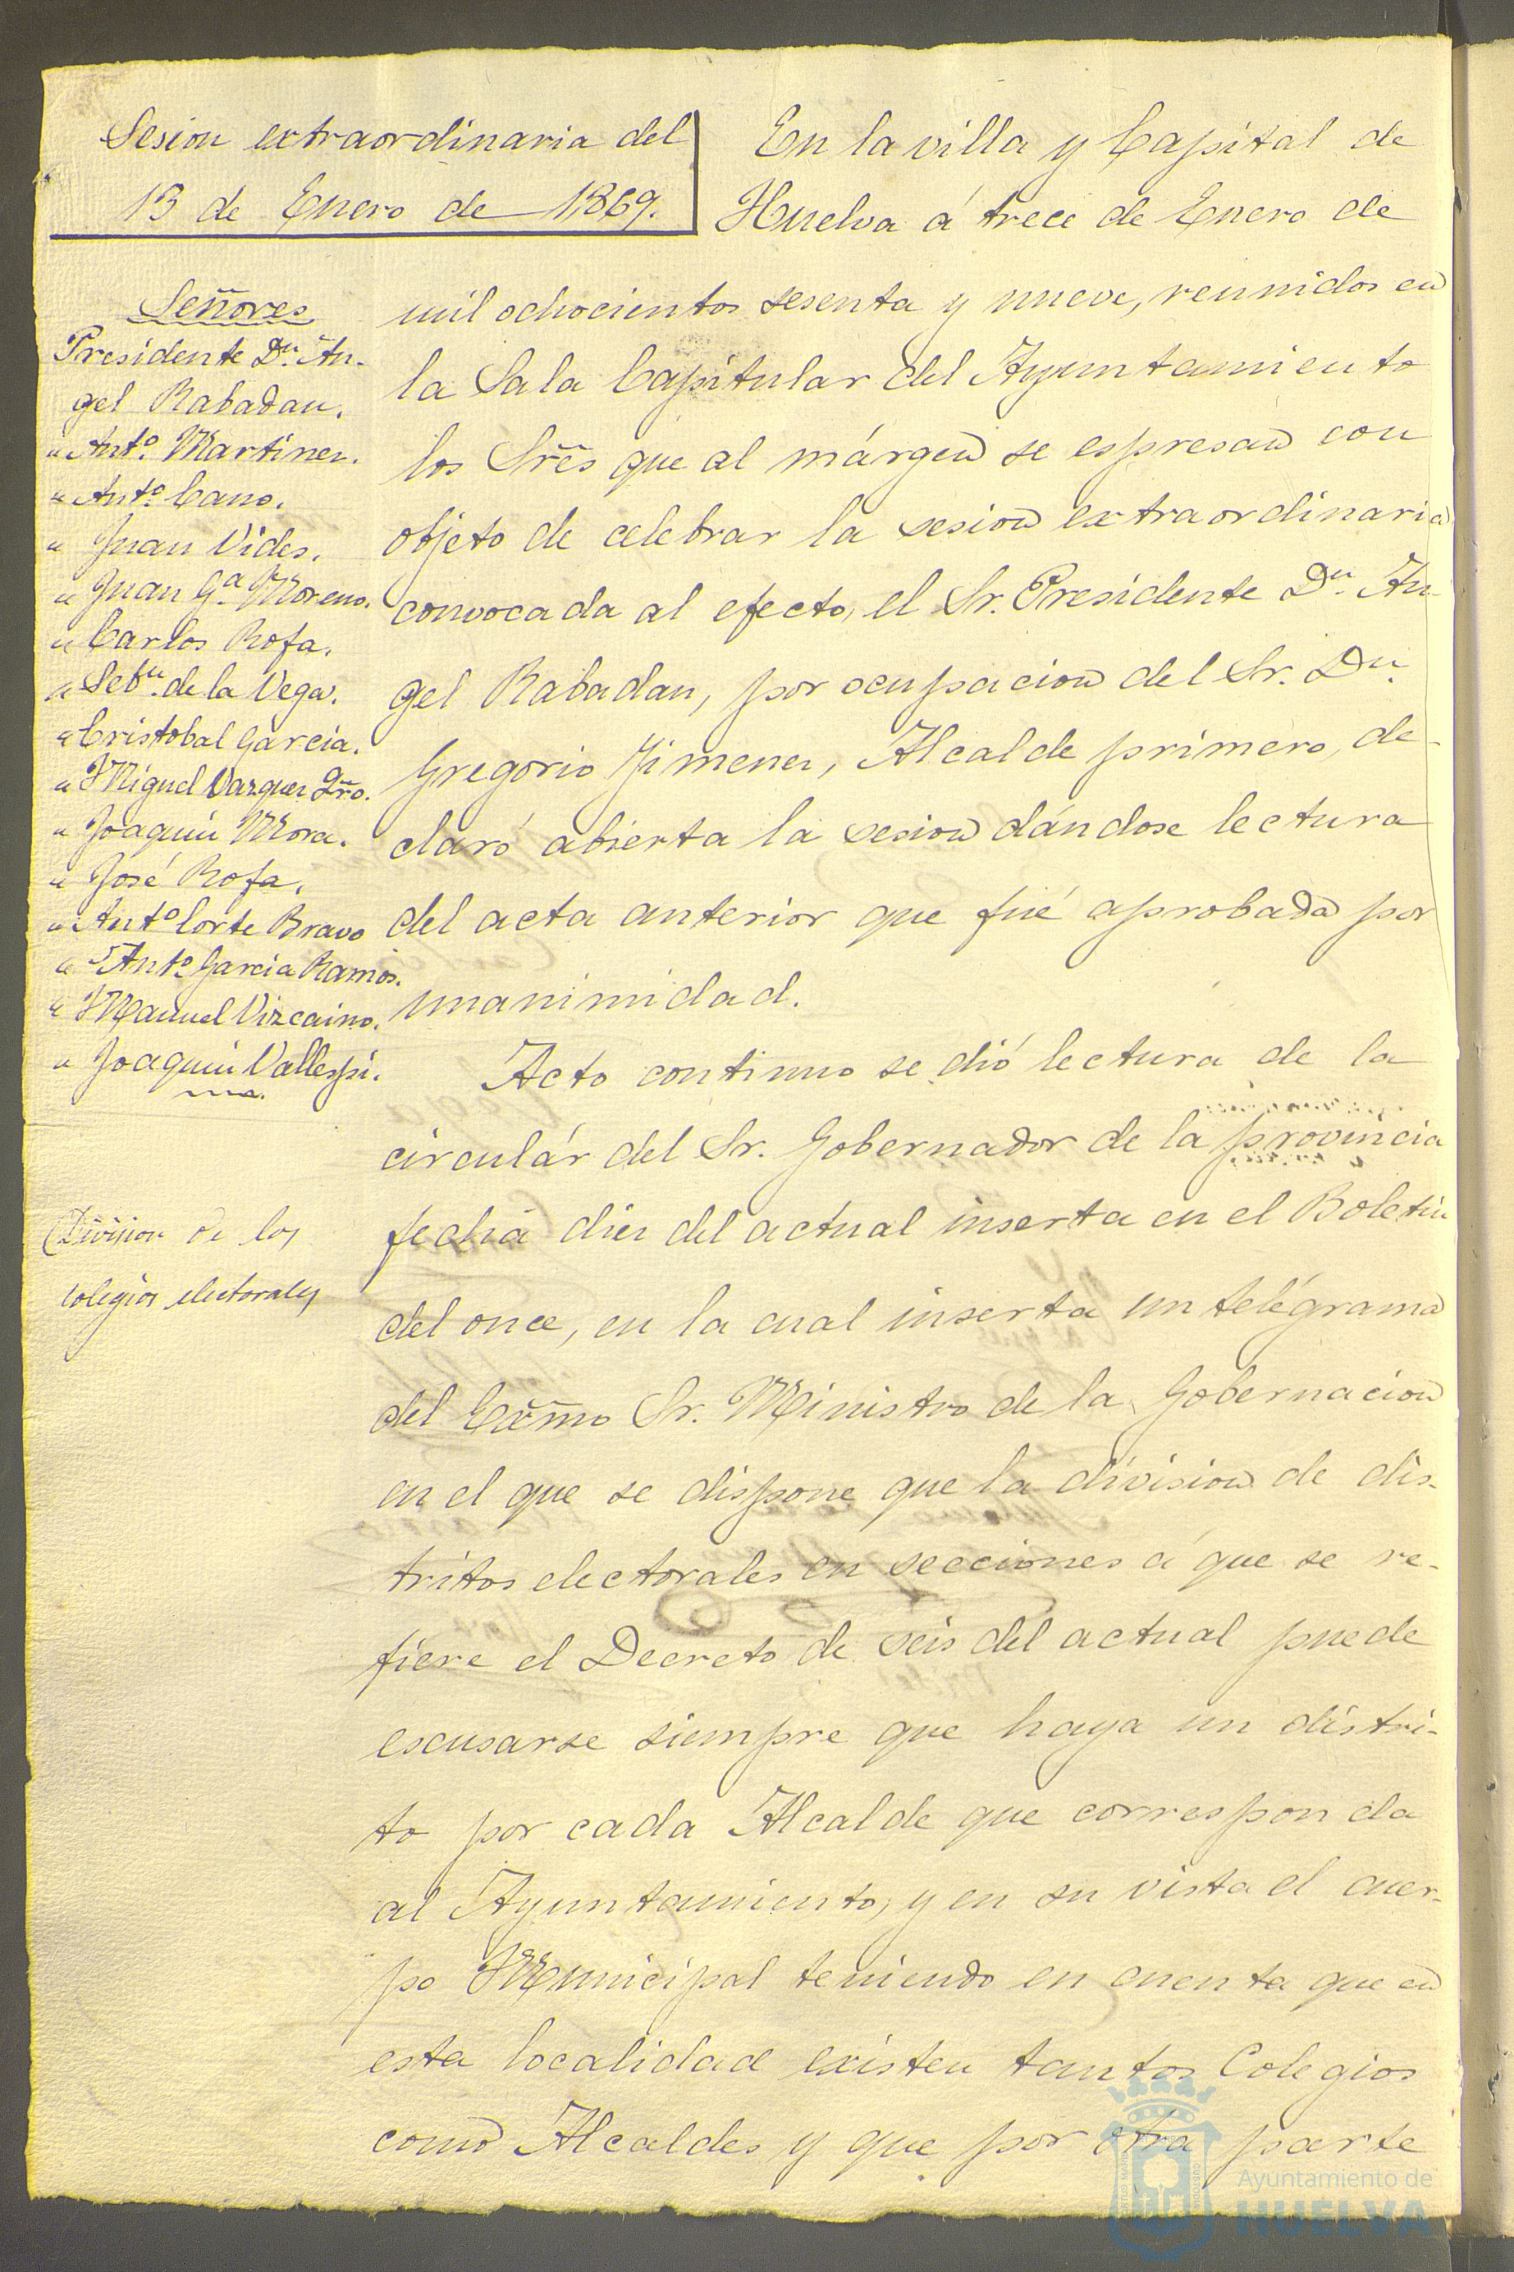 Sesion extraordinaria del
13 de Enero de 1,869.
Señores
Presidente Dn. An-
gel Rabadan.
" Anto. Martinez.
" Anto. Cano.
" Juan Vides.
" Juan Ga. Moreno.
" Carlos Rofa.
" Sebn. de la Vega.
" Cristobal Garcia.
" Miguel Vazquez
" Joaquin Mora.
" José Rofa.
" Anto. Lorte Bravo
" Anto. Garcia Ramos.
" Manuel Vizcaino.
" Joaquin Vallespi.
Division de los
colegios electorales
En la villa y Capital de
Huelva á trece de Enero de
mil ochocientos sesenta y nueve, reunidos en
la Sala Capitular del Ayuntamiento
los Sres que al márgen se espresan con
objeto de celebrar la sesion extraordinaria
convocada al efecto, el Sr. Presidente Dn. An-
gel Rabadan, por ocupacion del Sr. Dn.
Gregorio Jimenez, Alcalde primero, de-
claró abierta la sesion dándose lectura
del acta anterior que fué aprobada por
unanimidad.
Acto continuo se dió lectura de la
circulár del Sr. Gobernador de la provincia
fecha diez del actual inserta en el Boletin
del once, en la cual inserta un telégrama
del Exmo Sr. Ministro de la Gobernacion
en el que se dispone que la division de dis-
tritos electorales en secciones á que se re-
fiere el Decreto de seis del actual puede
escusarse siempre que haya un distri-
to por cada Alcalde que corresponda
al Ayuntamiento, y en su vista el cuer-
po Municipal teniendo en cuenta que en
esta localidad existen tantos Colegios
como Alcaldes y que por otra parte
Ayuntamiento de
HUELVA